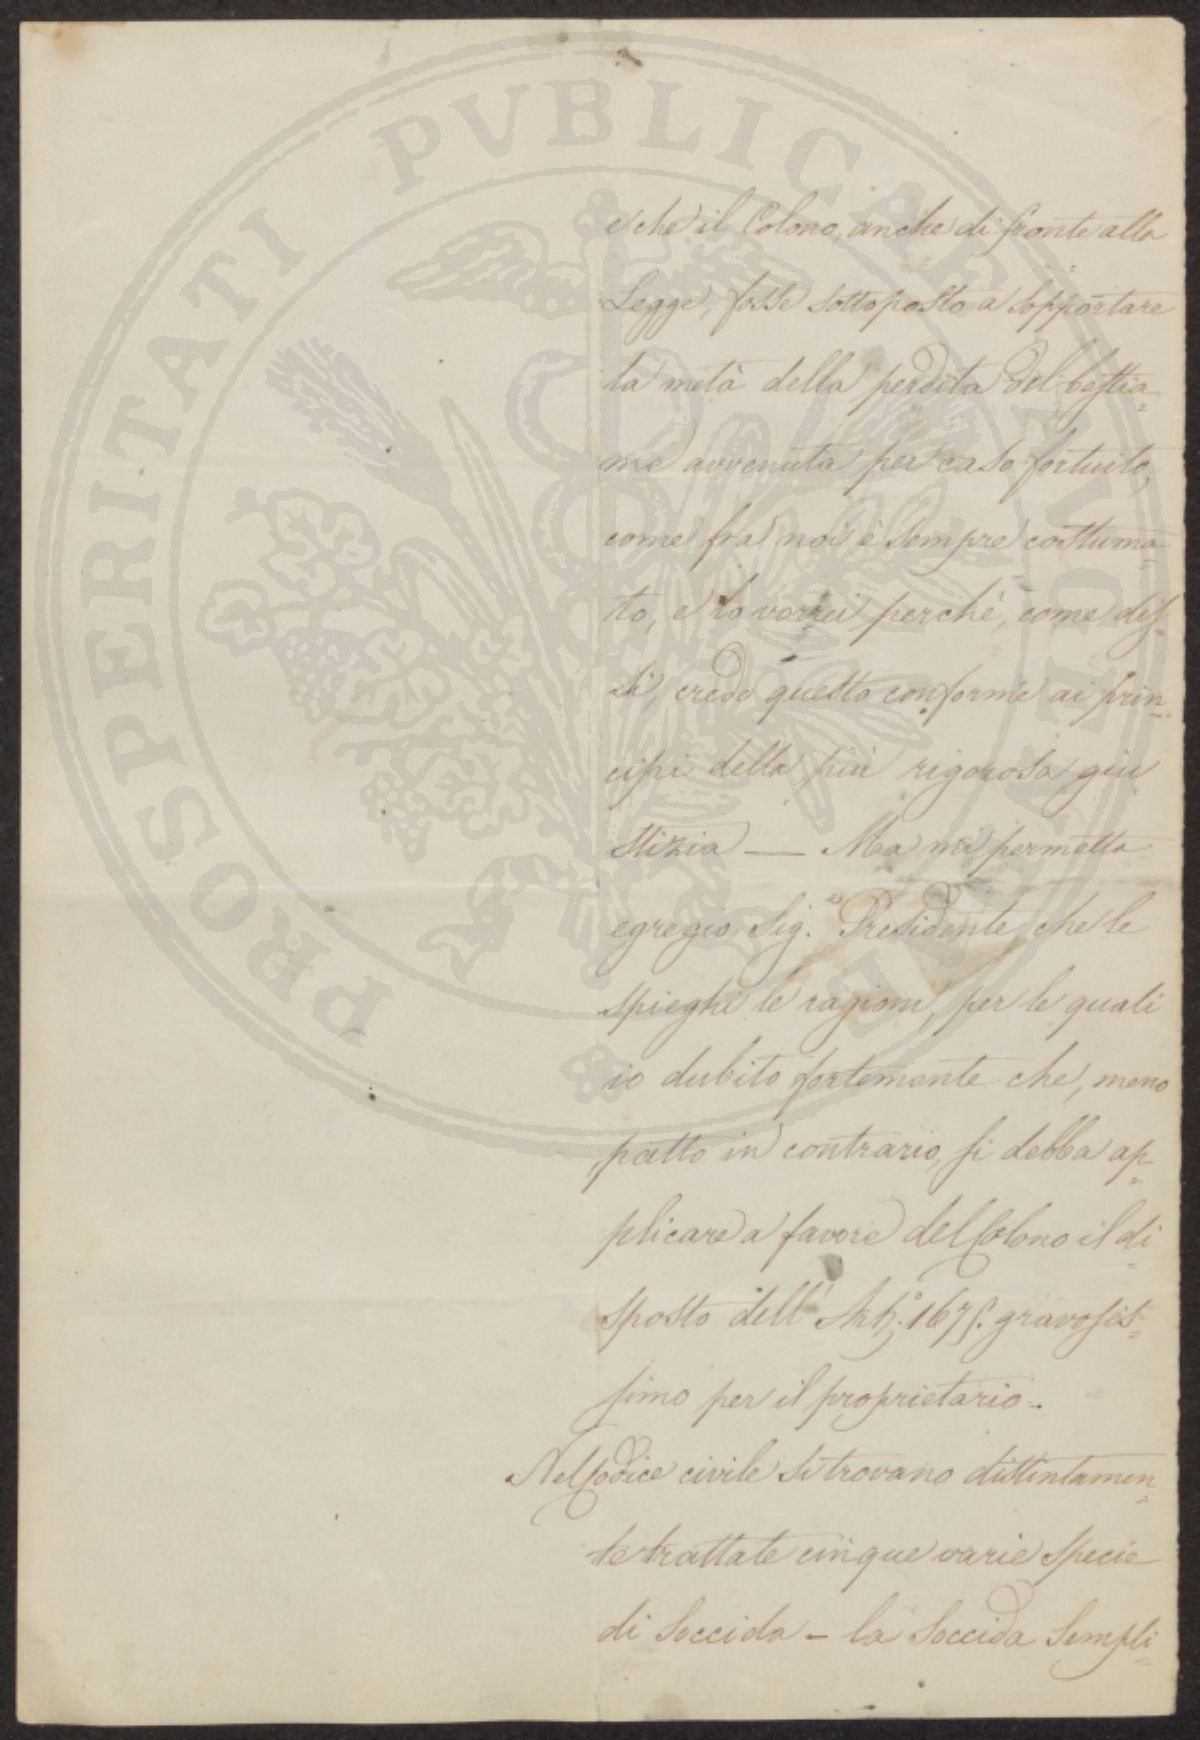 PROSPERITATI PVBLICAE AVGENDAE
e che il Colono, anche di fronte alla
Legge, fosse sottoposto a sopportare
la metà della perdita del bestia=
me avvenuta per caso fortuito,
come fra noi è sempre costuma=
to, e lo vorrei perchè, come dis=
si, credo questo conforme ai prin=
cipi della più rigorosa giu
stizia — Ma mi permetta
egregio Sig.r Presidente, che le
spieghi le ragioni, per le quali
io dubito fortemente che, meno
patto in contrario, si debba ap=
plicare a favore del Colono il di=
sposto dell' Art.o 1675. gravosis=
simo per il proprietario.
Nel Codice civile si trovano distintamen=
te trattate cinque varie specie
di Soccida – la Soccida Sempli=